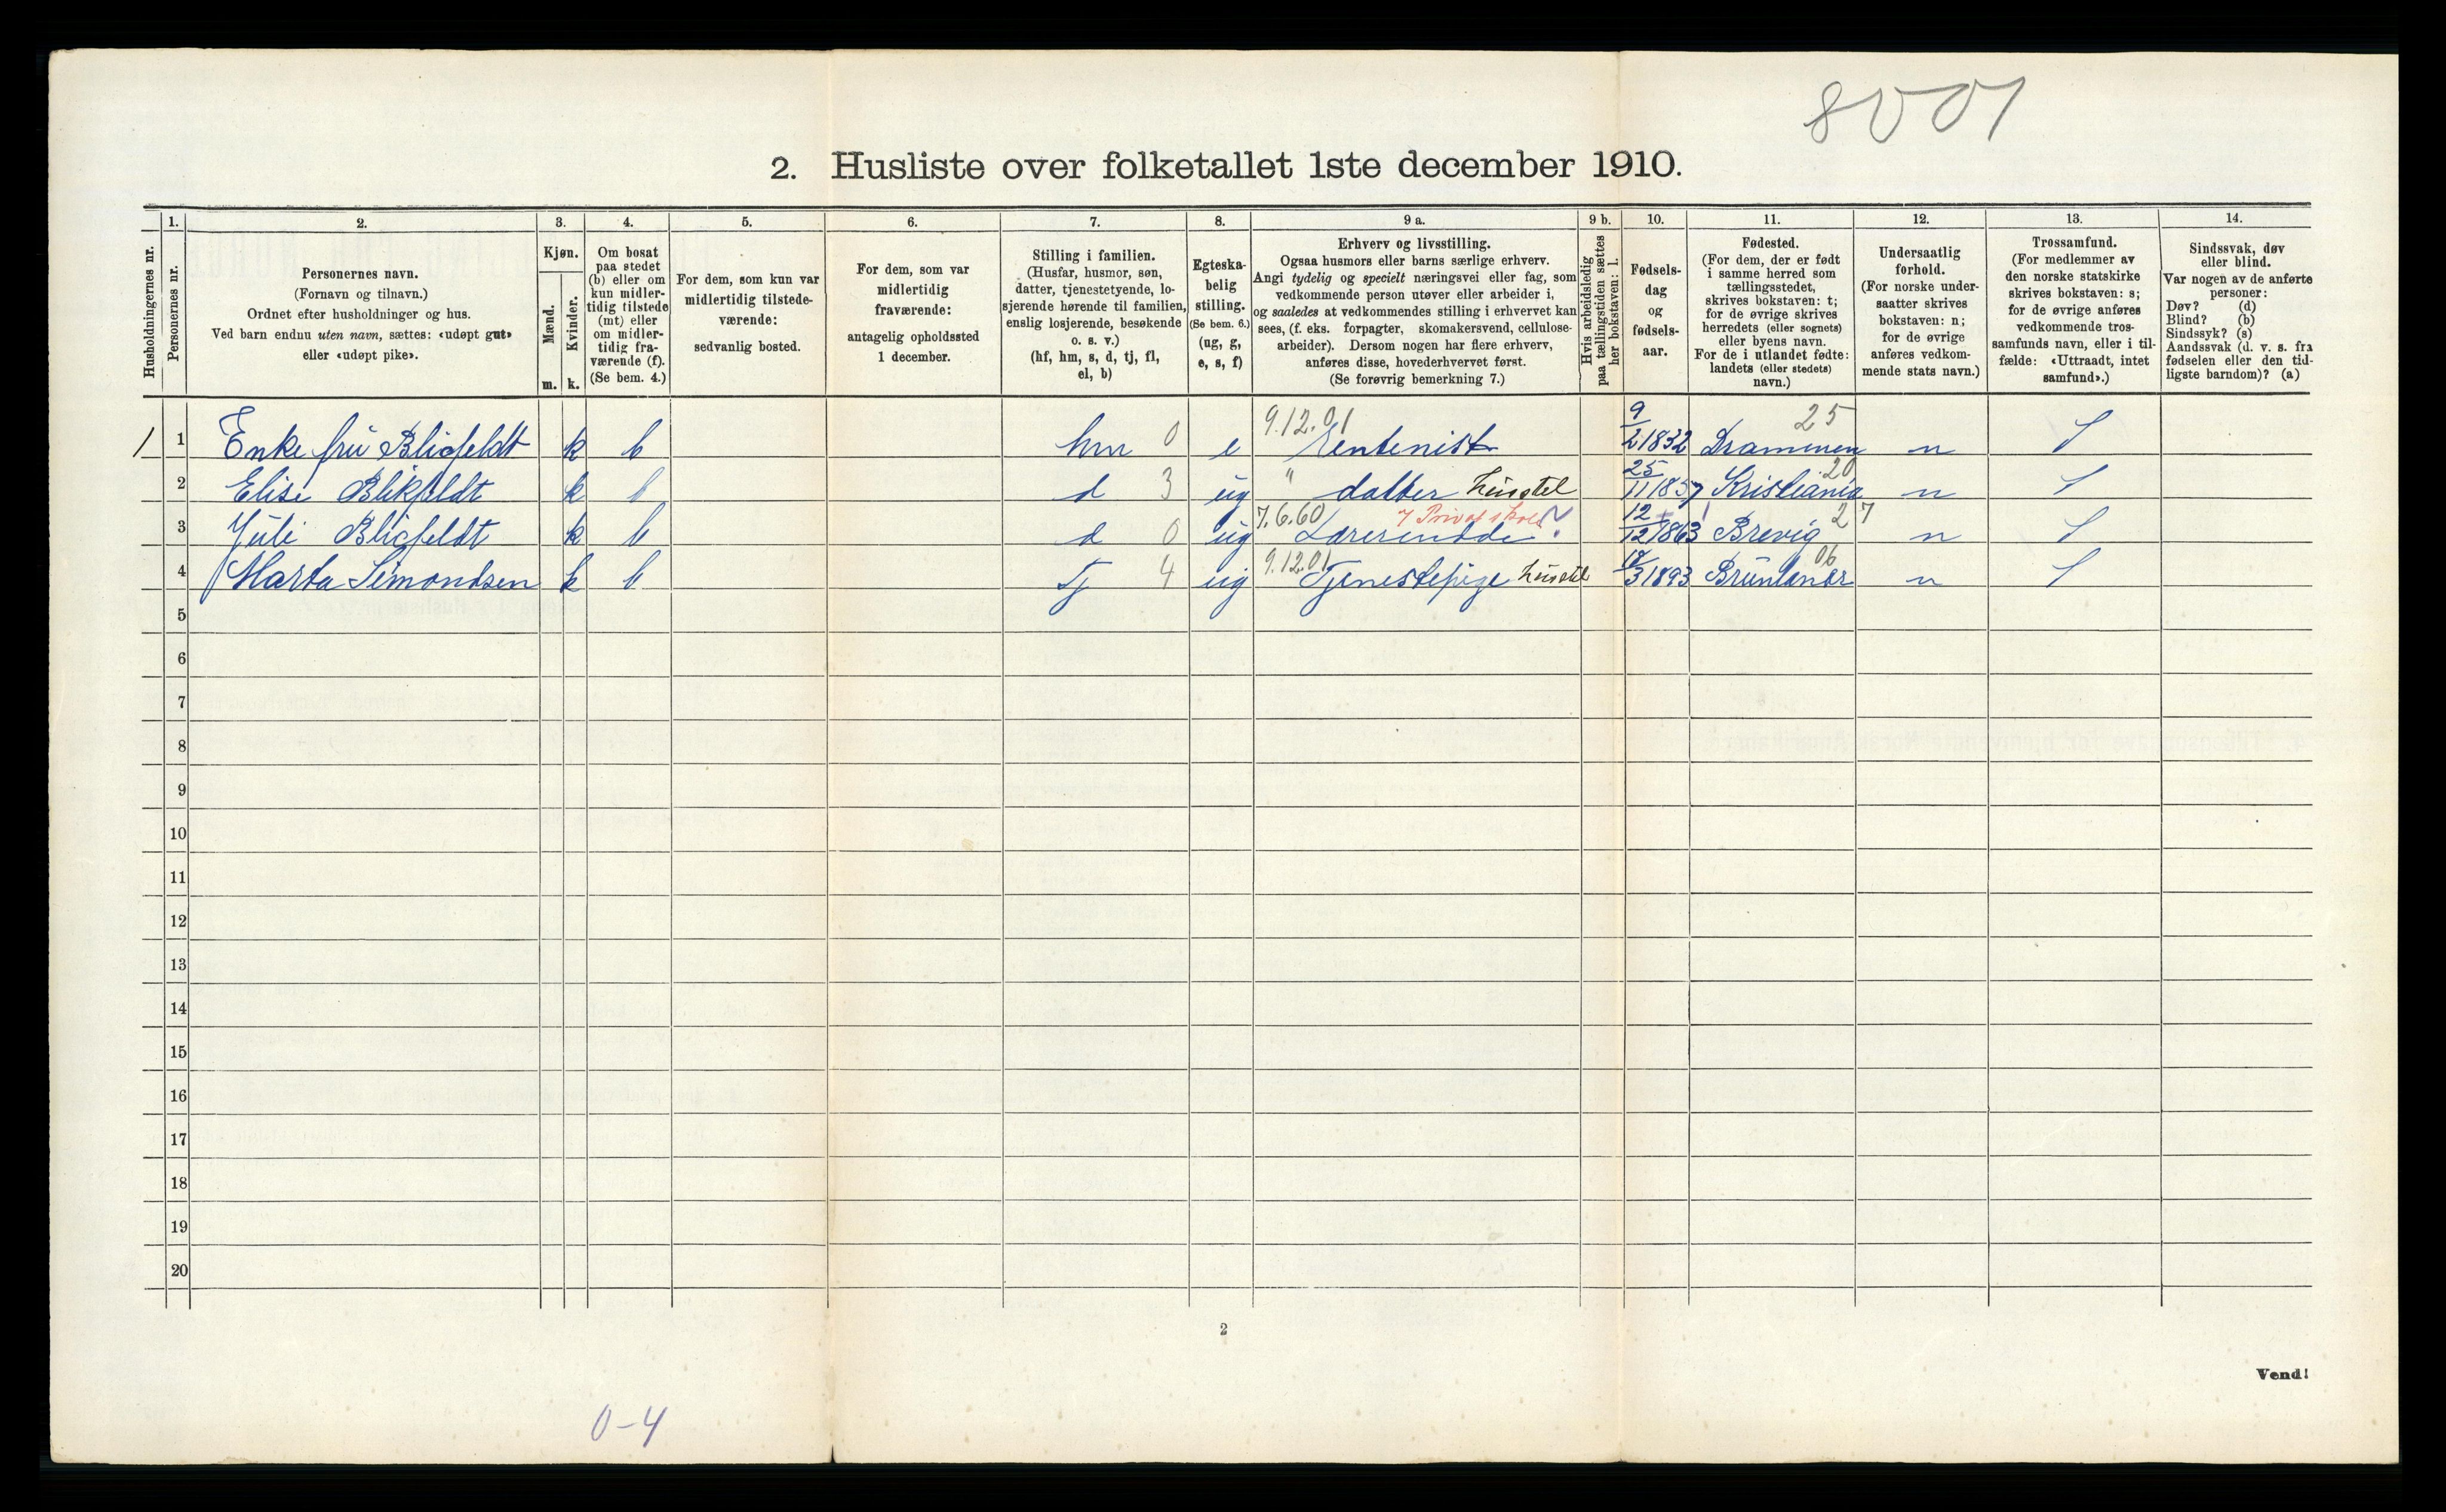 8001
2. Husliste over folketallet 1ste december 1910.
Husholdningernes nr.
1.
Personernes nr.
2.
Personernes navn.
(Fornavn og tilnavn.)
Ordnet efter husholdninger og hus.
Ved barn endnu uten navn, sættes: «udøpt gut»
eller «udøpt pike».
3.
Kjøn.
Mænd.
Kvinder.
m. k.
4.
Om bosat
paa stedet
(b) eller om
kun midler-
tidig tilstede
(mt) eller
om midler-
tidig fra-
værende (f).
(Se bem. 4.)
5.
For dem, som kun var
midlertidig tilstede-
værende:
sedvanlig bosted.
6.
For dem, som var
midlertidig
fraværende:
antagelig opholdssted
1 december.
7.
Stilling i familien.
(Husfar, husmor, søn,
datter, tjenestetyende, lo-
sjerende hørende til familien,
enslig losjerende, besøkende
o. s. v.)
(hf, hm, s, d, tj, fl,
el, b)
8.
Egteska-
belig
stilling.
(Se bem. 6.)
(ug, g,
e, s, f)
9 a.
Erhverv og livsstilling.
Ogsaa husmors eller barns særlige erhverv.
Angi tydelig og specielt næringsvei eller fag, som
vedkommende person utøver eller arbeider i,
og saaledes at vedkommendes stilling i erhvervet kan
sees, (f. eks. forpagter, skomakersvend, cellulose-
arbeider). Dersom nogen har flere erhverv,
anføres disse, hovederhvervet først.
(Se forøvrig bemerkning 7.)
9 b.
Hvis arbeidsledig
paa tællingstiden sættes
her bokstaven: l.
10.
Fødsels-
dag
og
fødsels-
aar.
11.
Fødested.
(For dem, der er født
i samme herred som
tællingsstedet,
skrives bokstaven: t;
for de øvrige skrives
herredets (eller sognets)
eller byens navn.
For de i utlandet fødte:
landets (eller stedets)
navn.)
12.
Undersaatlig
forhold.
(For norske under-
saatter skrives
bokstaven: n;
for de øvrige
anføres vedkom-
mende stats navn.)
13.
Trossamfund.
(For medlemmer av
den norske statskirke
skrives bokstaven: s;
for de øvrige anføres
vedkommende tros-
samfunds navn, eller i til-
fælde: «Uttraadt, intet
samfund».)
14.
Sindssvak, døv
eller blind.
Var nogen av de anførte
personer:
Døv? (d)
Blind? (b)
Sindssyk? (s)
Aandssvak (d. v. s. fra
fødselen eller den tid-
ligste barndom)? (a)
1 1 Enke fru Blicfeldt k b hm 0 e 9.12.01 Rentenist 9/2 1832 Drammen 25 n S
2 Elise Blikfeldt k b d 3 ug " datter husstel 25/11 1857 Kristiania 20 n S
3 Juli Blicfeldt k b d 0 ug 7.6.60 Lærerindde ? Privatskole 12/12 1863 Brevig 27 n S
4 Marta Simondsen k b Tj 4 ug 9.12.01 Tjenestepige husstel 18/3 1893 Brunlanær 06 n S
5
6
7
8
9
10
11
12
13
14
15
16
17
18
19
20
2
Vend!
0-4